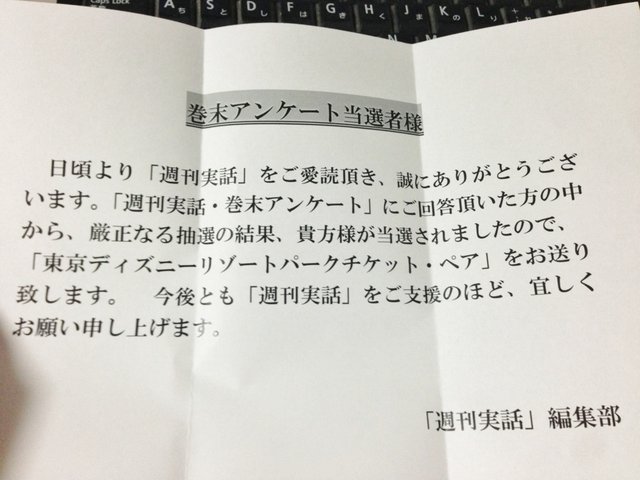 Caps Lock
A ち S と D し F は G き H く J ま K の L り
巻末アンケート当選者様
日頃より「週刊実話」をご愛読頂き、誠にありがとうござ
います。「週刊実話・巻末アンケート」にご回答頂いた方の中
から、厳正なる抽選の結果、貴方様が当選されましたので、
「東京ディズニーリゾートパークチケット・ペア」をお送り
致します。　今後とも「週刊実話」をご支援のほど、宜しく
お願い申し上げます。
「週刊実話」編集部